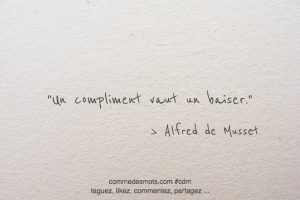 "Un compliment vaut un baiser."
> Alfred de Musset
commedesmots.com #cdm
taguez, likez, commentez, partagez ...